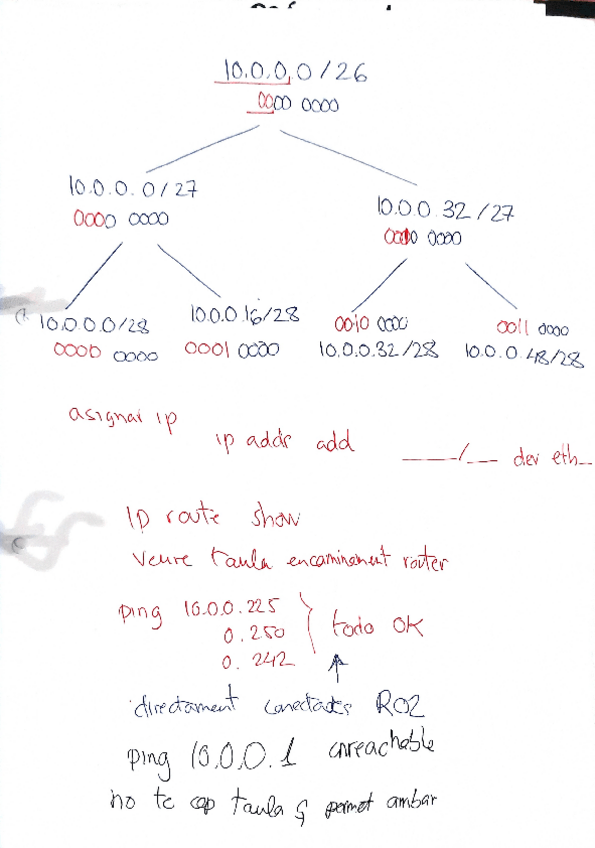 10.0.0.0/26
0000 0000
10.0.0.0/27
0000 0000
10.0.0.32/27
0010 0000
10.0.0.0/28
0000 0000
10.0.0.16/28
0001 0000
0010 0000
10.0.0.32/28
0011 0000
10.0.0.48/28
asignar ip
ip addr add ____/__ dev eth_
ip route show
veure taula encaminament router
ping 10.0.0.225
0.250
0.242
todo OK
directament conectades R02
ping 10.0.0.1 unreachable
no te cap taula q permet ambar